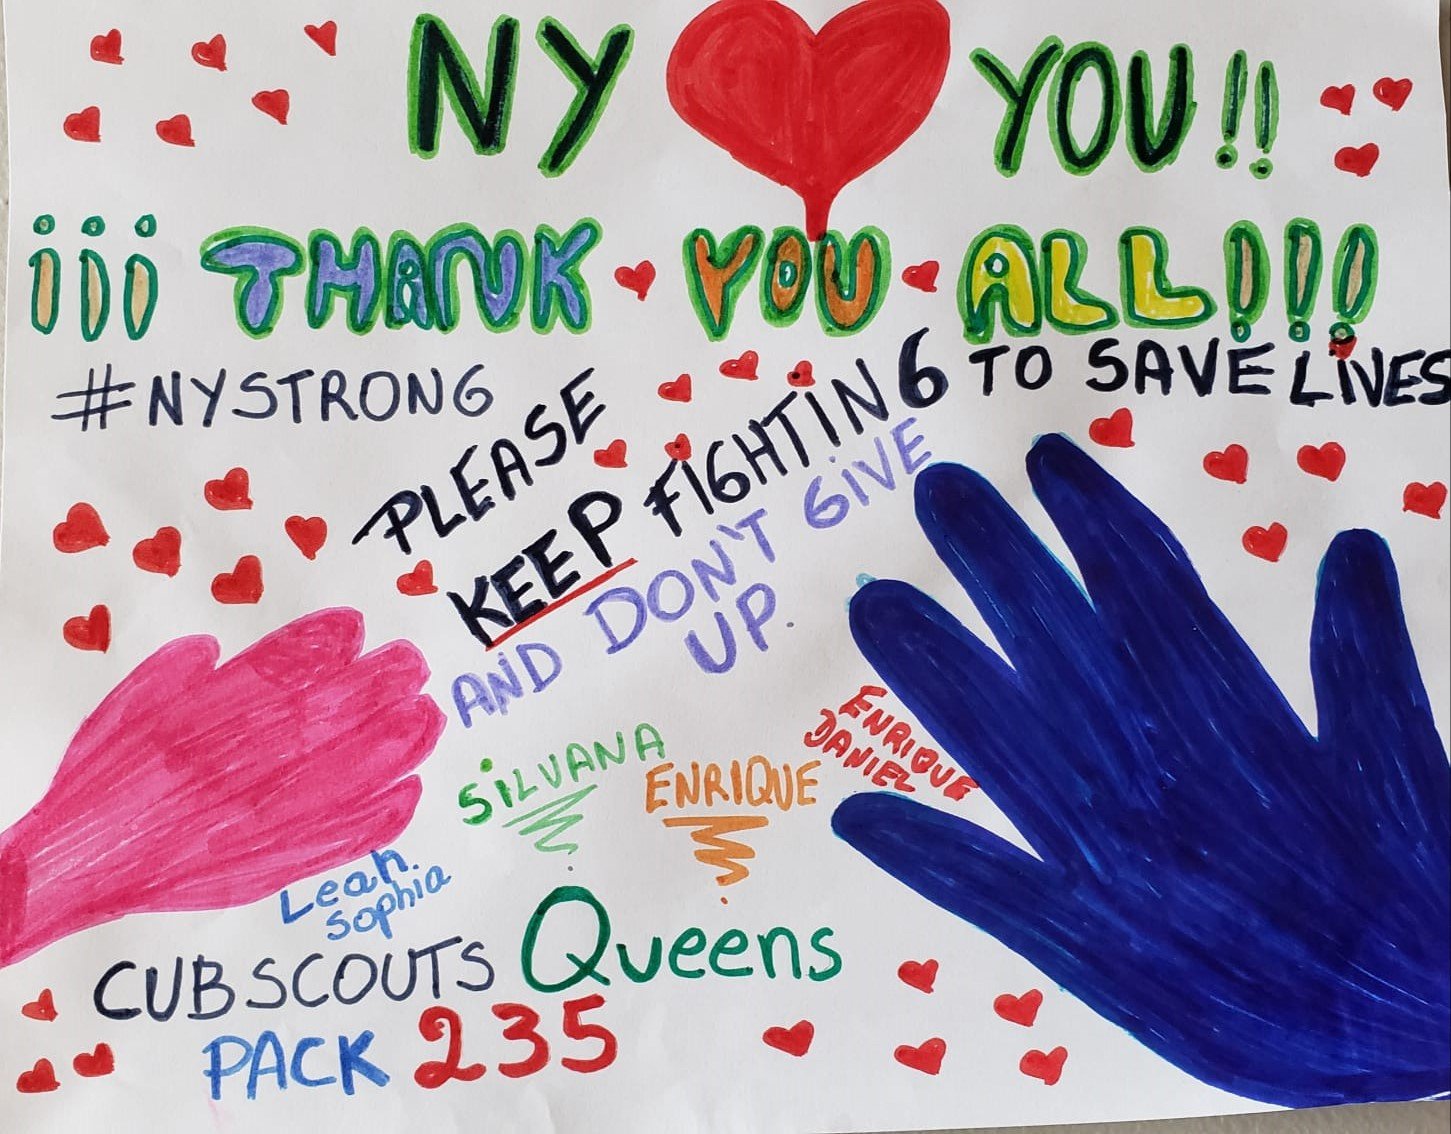 NY YOU!!
¡¡¡ THANK YOU ALL!!!
#NYSTRONG
PLEASE
KEEP FIGHTING TO SAVE LIVES
AND DON'T GIVE
UP.
SILVANA
ENRIQUE
ENRIQUE
DANIEL
Leah.
Sophia
CUBSCOUTS Queens
PACK 235